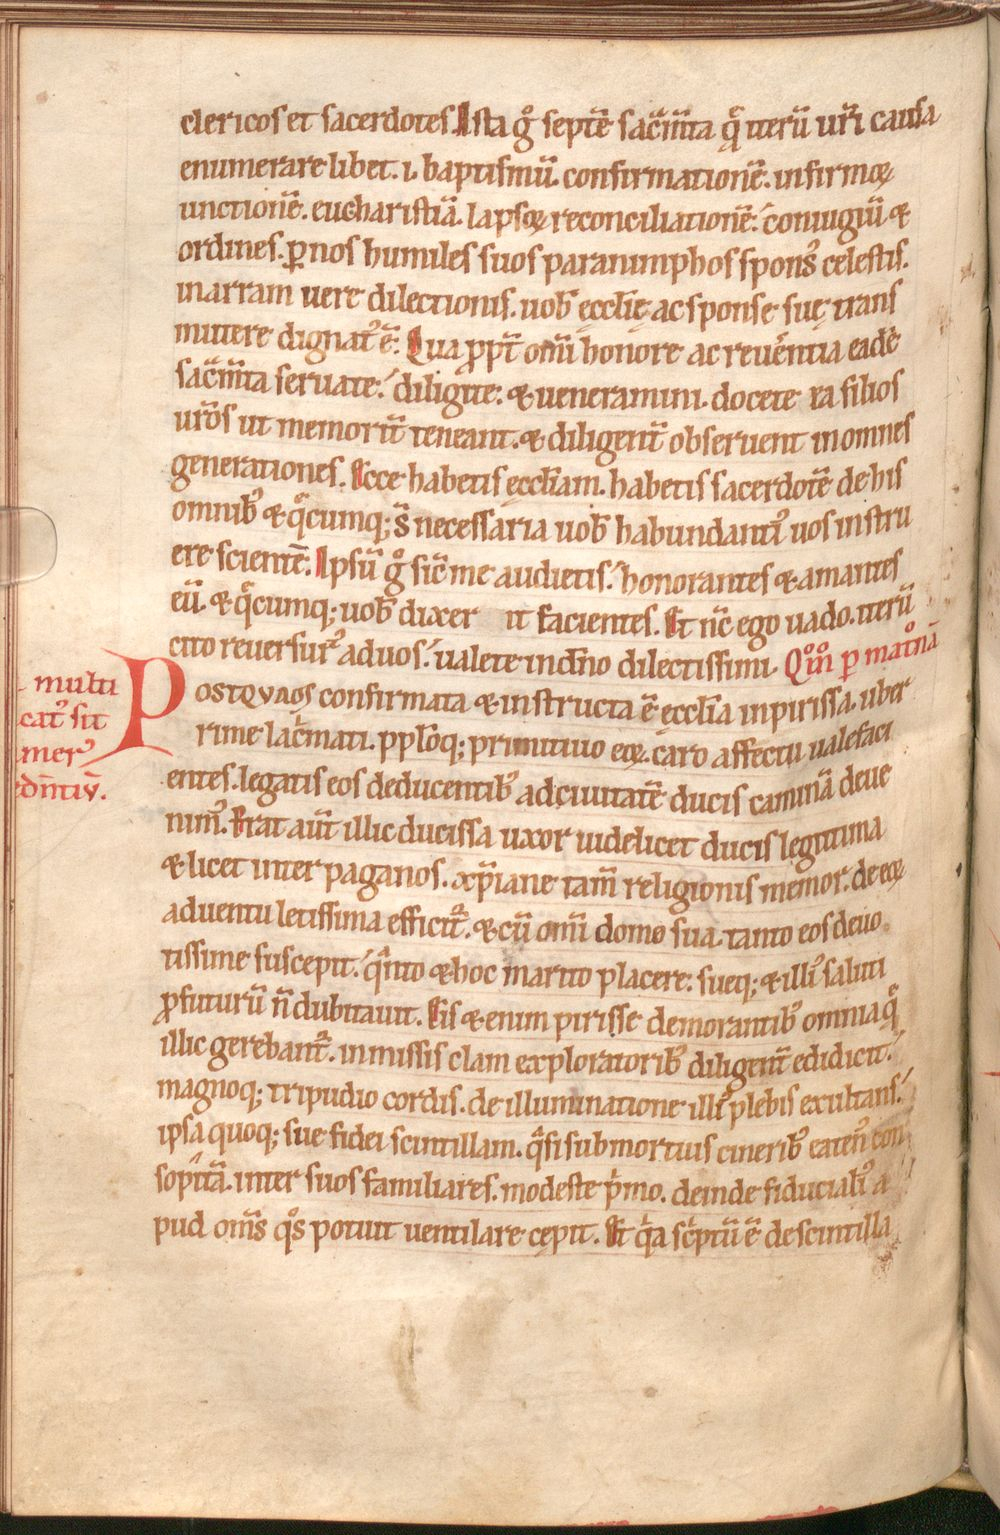 clericos et sacerdotes. Ista gͦ septē sac̄m̄ta q̄ iterū ur̄i causa
enumerare libet. i. baptismū. confirmationē. infirmoꝝ
unctionē. eucharistiā. lapsoꝝ reconciliationē. coniugiū &
ordines. ꝑ nos humiles suos paranimphos spons᾿ celestis.
in arram uere dilectionis. uob̄ ęccl̄ię ac sponse suę trans
mittere dignat᾿ ē. Qua ꝓpt̄ om̄i honore ac reuerentia eadē
sac̄m̄ta seruate. diligite. & ueneramini. docete ea filios
ur̄os ut memorit̄ teneant. & diligent̄ obseruent in omnes
generationes. Ecce habetis ęccl̄iam. habetis sacerdotē de his
omnib᾿ & q̄cumq; s̄ necessaria uob̄ habundant᾿ uos instru
ere scientē. Ipsū gͦ sic̄ me audietis. honorantes & amantes
eū. & q̄cumq; uob̄ dixer it facientes. Et nc̄ ego uado. iterū
cito reuersur᾿ ad uos. ualete in dn̄o dilectissimi. Qͦm̄ ꝑ matͦnā
multi
cat᾿ sit
mer᾿
edn̄tiū.
Postquam confirmata & instructa ē ęccl̄ia in pirissa. uber
rime lac̄mati. ppl̄oq; primitiuo eoꝝ. caro affectu ualefaci
entes. legatis eos deducentib᾿ ad ciuitatē ducis caminā deue
nim᾿. Erat aut̄ illic ducissa uxor uidelicet ducis legitima
& licet inter paganos. xp̄iane tam̄ religionis memor. de eoꝝ
aduentu letissima efficit᷑. & cū om̄i domo sua. tanto eos deuo
tissime suscepit. q̄nto & hoc marito placere. sueq; & illi᾿ saluti
ꝓfuturū n̄ dubitauit. Eis & enim pirisse demorantib᾿ omnia q̄
illic gerebant᷑. inmissis clam exploratorib᾿ diligent̄ edidicit.
magnoq; tripudio cordis. de illuminatione illi᾿ plebis exultans.
ipsa quoq; sue fidei scintillam. q̄si submortuis cinerib᾿ eaten᾿ con
sopitā. inter suos familiares. modeste pͥmo. deinde fiduciali᾿ a
pud om̄s qͦs potuit uentilare cępit. Et qͥa scͥptū ē de scintilla